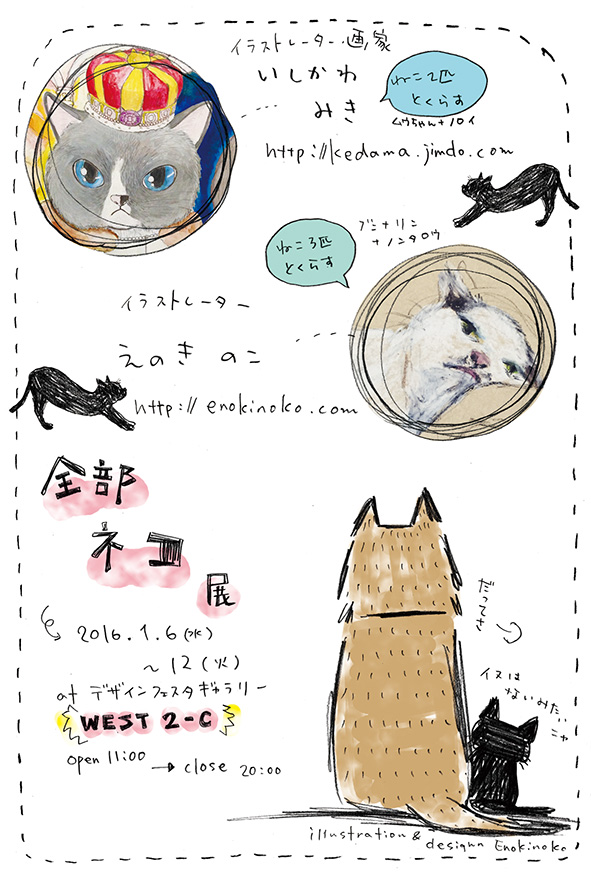 イラストレーター・画家
いしかわ
みき
ねこ2匹
とくらす
ムウちゃん+ノイ
http://kedama.jimdo.com
ねこ3匹
とくらす
ブン+リン
+ノンタロウ
イラストレーター
えのき のこ
http://enokinoko.com
全部
ネコ
展
2016.1.6(水)
~12(火)
at デザインフェスタギャラリー
WEST 2-C
open 11:00
→ close 20:00
だってさ
イスは
ないみたい
ニャ
illustration &
designn Enokinoko